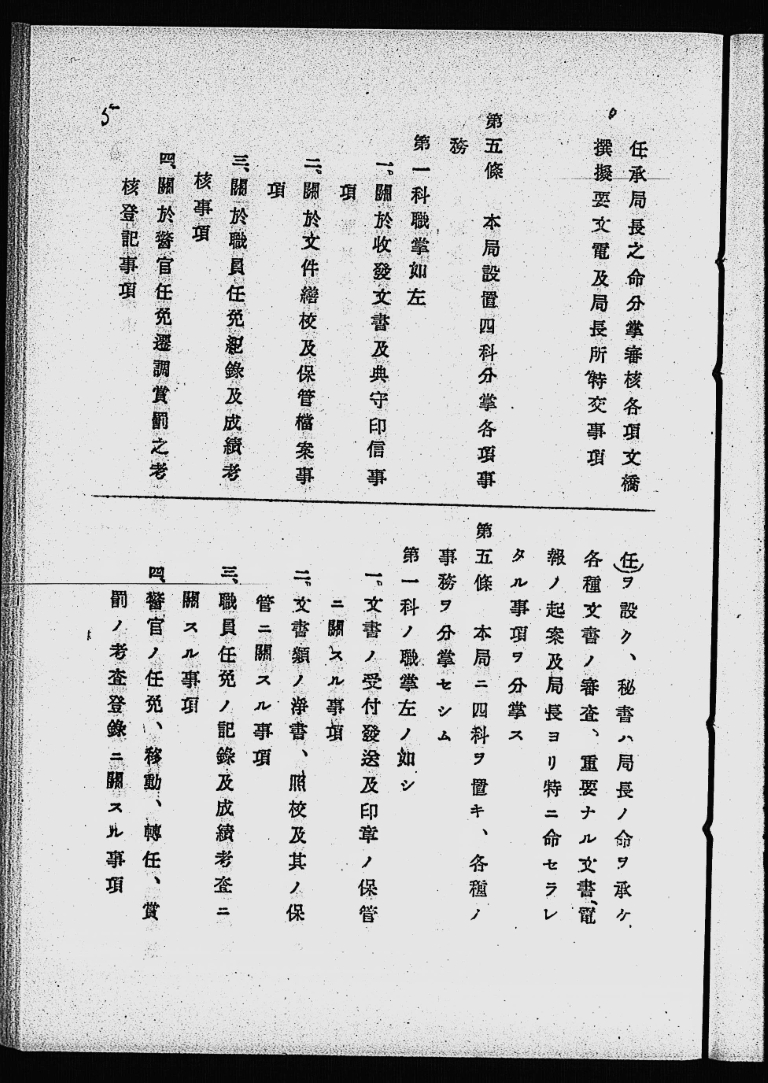 任承局長之命分掌審核各項文橋
撰擬要文電及局長所特交事項
第五條　本局設置四科分掌各項事
務
第一科職掌如左
一、關於收發文書及典守印信事
項
二、關於文件繕校及保管檔案事
項
三、關於職員任免紀錄及成績考
核事項
四、關於警官任免遷調賞罰之考
核登記事項
5
任ヲ設ク、秘書ハ局長ノ命ヲ承ケ
各種文書ノ審査、重要ナル文書、電
報ノ起案及局長ヨリ特ニ命セラレ
タル事項ヲ分掌ス
第五條　本局ニ四科ヲ置キ、各種ノ
事務ヲ分掌セシム
第一科ノ職掌左ノ如シ
一、文書ノ受付發送及印章ノ保管
ニ關スル事項
二、文書類ノ淨書、照校及其ノ保
管ニ關スル事項
三、職員任免ノ記錄及成績考査ニ
關スル事項
四、警官ノ任免、移動、轉任、賞
罰ノ考査登錄ニ關スル事項